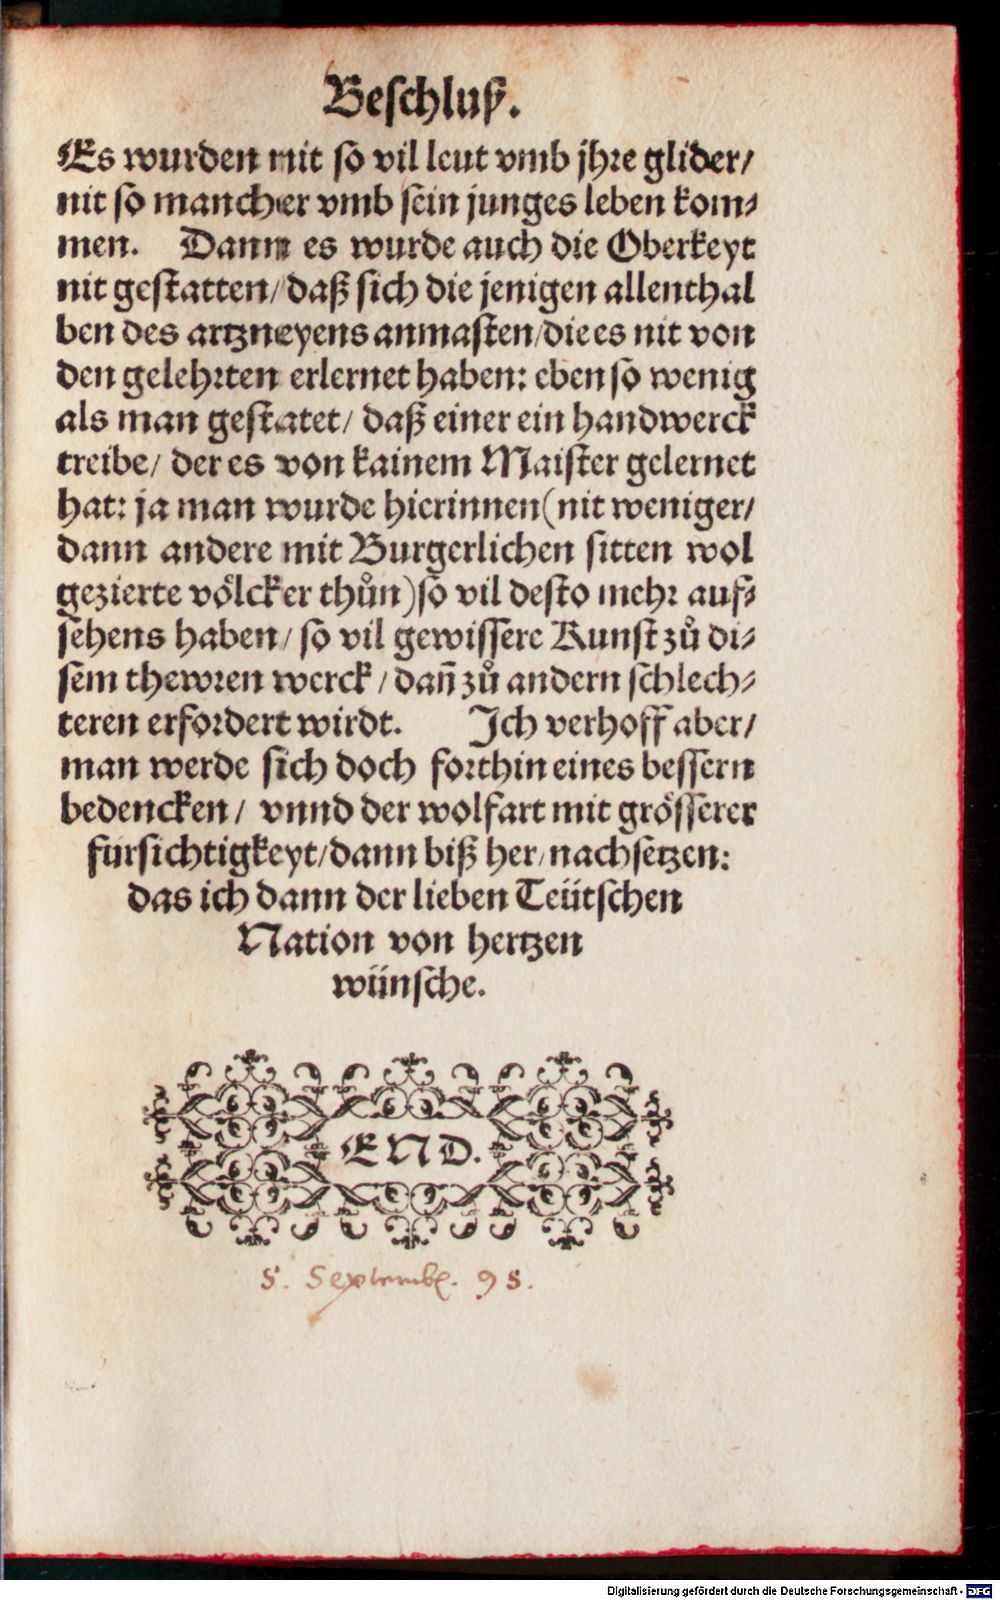 Beschluß.
Es wurden nit so vil leut vmb jhre glider/
nit so mancher vmb sein junges leben kom-
men. Dann es wurde auch die Oberkeyt
nit gestatten/ daß sich die jenigen allenthal
ben des artzneyens anmasten/ die es nit von
den gelehrten erlernet haben: eben so wenig
als man gestatet/ daß einer ein handwerck
treibe/ der es von kainem Maister gelernet
hat: ja man wurde hierinnen (nit weniger/
dann andere mit Burgerlichen sitten wol
gezierte voͤlcker thuͦn) so vil desto mehr auf-
sehens haben/ so vil gewissere Kunst zuͦ di-
sem thewren werck/ dañ zuͦ andern schlech-
teren erfordert wirdt. Ich verhoff aber/
man werde sich doch forthin eines bessern
bedencken/ vnnd der wolfart mit groͤsserer
fürsichtigkeyt/ dann biß her/ nachsetzen:
das ich dann der lieben Teütschen
Nation von hertzen
wünsche.
END.
5. Septemb. 95.
Digitalisierung gefördert durch die Deutsche Forschungsgemeinschaft - DFG